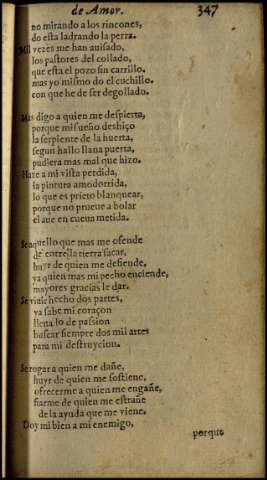 de Amor. 347
no mirando a los rincones,
do esta ladrando la perra.
Mil vezes me han auisado,
los pastores del collado,
que esta el pozo sin carrillo.
mas yo mismo do el cuchillo.
con que he de ser degollado.
Mas digo a quien me despierta,
porque mi sueño deshiço
la serpiente de la huerta,
segun hallo llana puerta,
pudiera mas mal que hizo.
Haze a mi vista perdida,
la pintura amodorrida,
lo que es prieto blanquear,
porque no prueue a bolar
el aue en cueua metida.
Se aquello que mas me ofende
de entrella tierra sacar,
huyr de quien me defiende,
ya quien mas mi pecho enciende,
mayores gracias le dar.
Se viuir hecho dos partes,
ya sabe mi coraçon
llena lo de passion
buscar siempre dos mil artes
para mi destruycion.
Se rogar a quien me dañe,
huyr de quien me sostiene,
ofrecerme a quien me engañe,
fiarme de quien me estrañe
de la ayuda que me viene.
Doy mi bien a mi enemigo,
porque